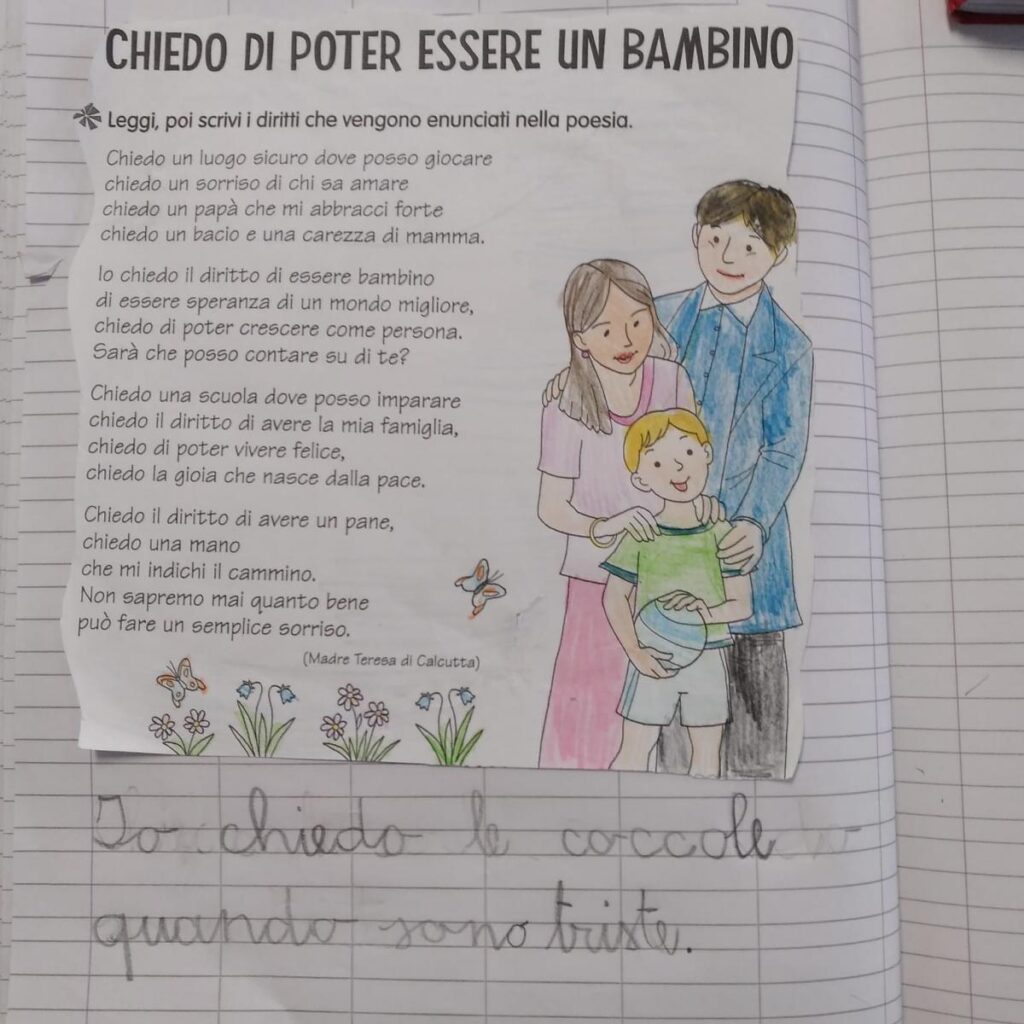 CHIEDO DI POTER ESSERE UN BAMBINO
Leggi, poi scrivi i diritti che vengono enunciati nella poesia.
Chiedo un luogo sicuro dove posso giocare
chiedo un sorriso di chi sa amare
chiedo un papà che mi abbracci forte
chiedo un bacio e una carezza di mamma.
Io chiedo il diritto di essere bambino
di essere speranza di un mondo migliore,
chiedo di poter crescere come persona.
Sarà che posso contare su di te?
Chiedo una scuola dove posso imparare
chiedo il diritto di avere la mia famiglia,
chiedo di poter vivere felice,
chiedo la gioia che nasce dalla pace.
Chiedo il diritto di avere un pane,
chiedo una mano
che mi indichi il cammino.
Non sapremo mai quanto bene
può fare un semplice sorriso.
(Madre Teresa di Calcutta)
Io chiedo le coccole
quando sono triste.